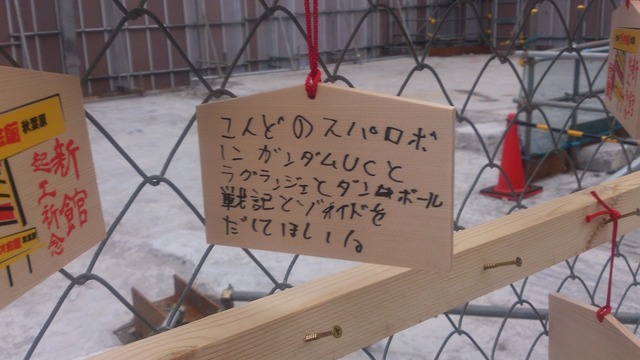 こんどのスパロボ
に ガンダムUCと
ラグランジェとダンボール
戦記とゾイドを
だしてほしいん
秋葉原
新館
起工祈念